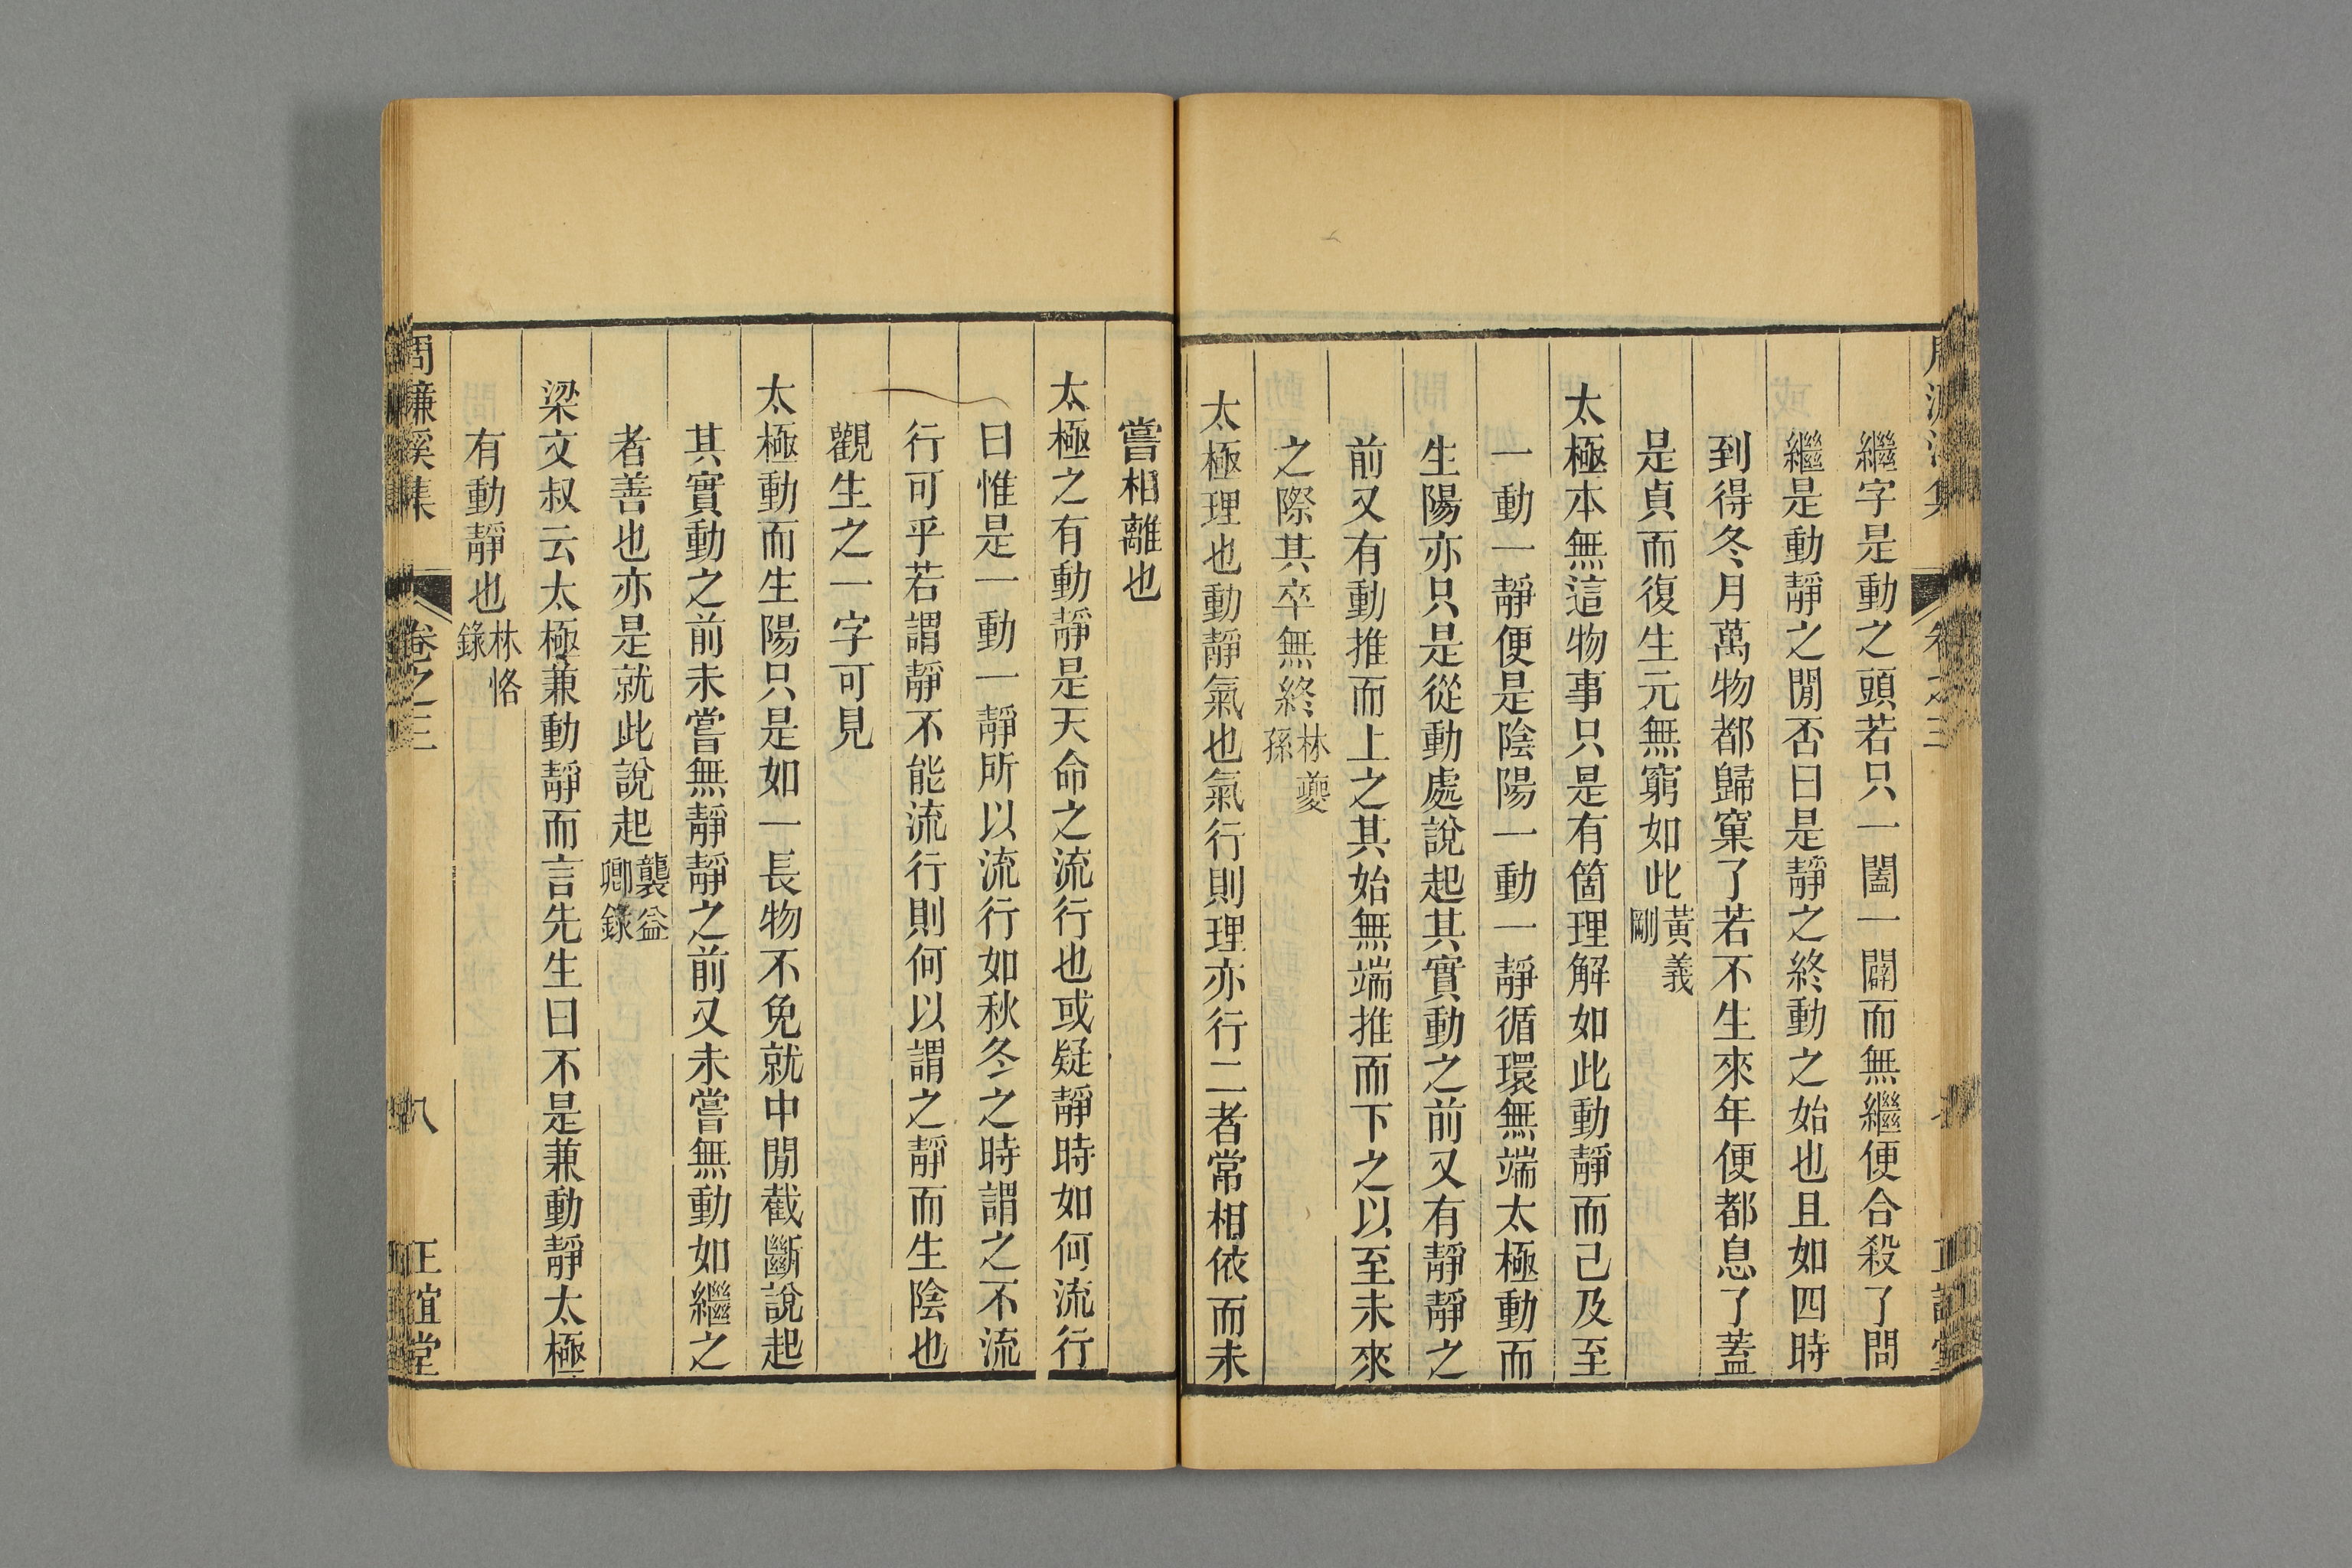 繼字是動之頭若只一闔一闢而無繼便合殺了問
繼是動靜之閒否曰是靜之終動之始也且如四時
到得冬月萬物都歸窠了若不生來年便都息了蓋
是貞而復生元無窮如此黃義剛
太極本無這物事只是有箇理解如此動靜而已及至
一動一靜便是陰陽一動一靜循環無端太極動而
生陽亦只是從動處說起其實動之前又有靜靜之
前又有動推而上之其始無端推而下之以至未來
之際其卒無終林夔孫
太極理也動靜氣也氣行則理亦行二者常相依而未
嘗相離也
太極之有動靜是天命之流行也或疑靜時如何流行
曰惟是一動一靜所以流行如秋冬之時謂之不流
行可乎若謂靜不能流行則何以謂之靜而生陰也
觀生之一字可見
太極動而生陽只是如一長物不免就中閒截斷說起
其實動之前未嘗無靜靜之前又未嘗無動如繼之
者善也亦是就此說起龔益卿錄
梁文叔云太極兼動靜而言先生曰不是兼動靜太極
有動靜也林恪錄
周濂溪集 卷之三 八 正誼堂